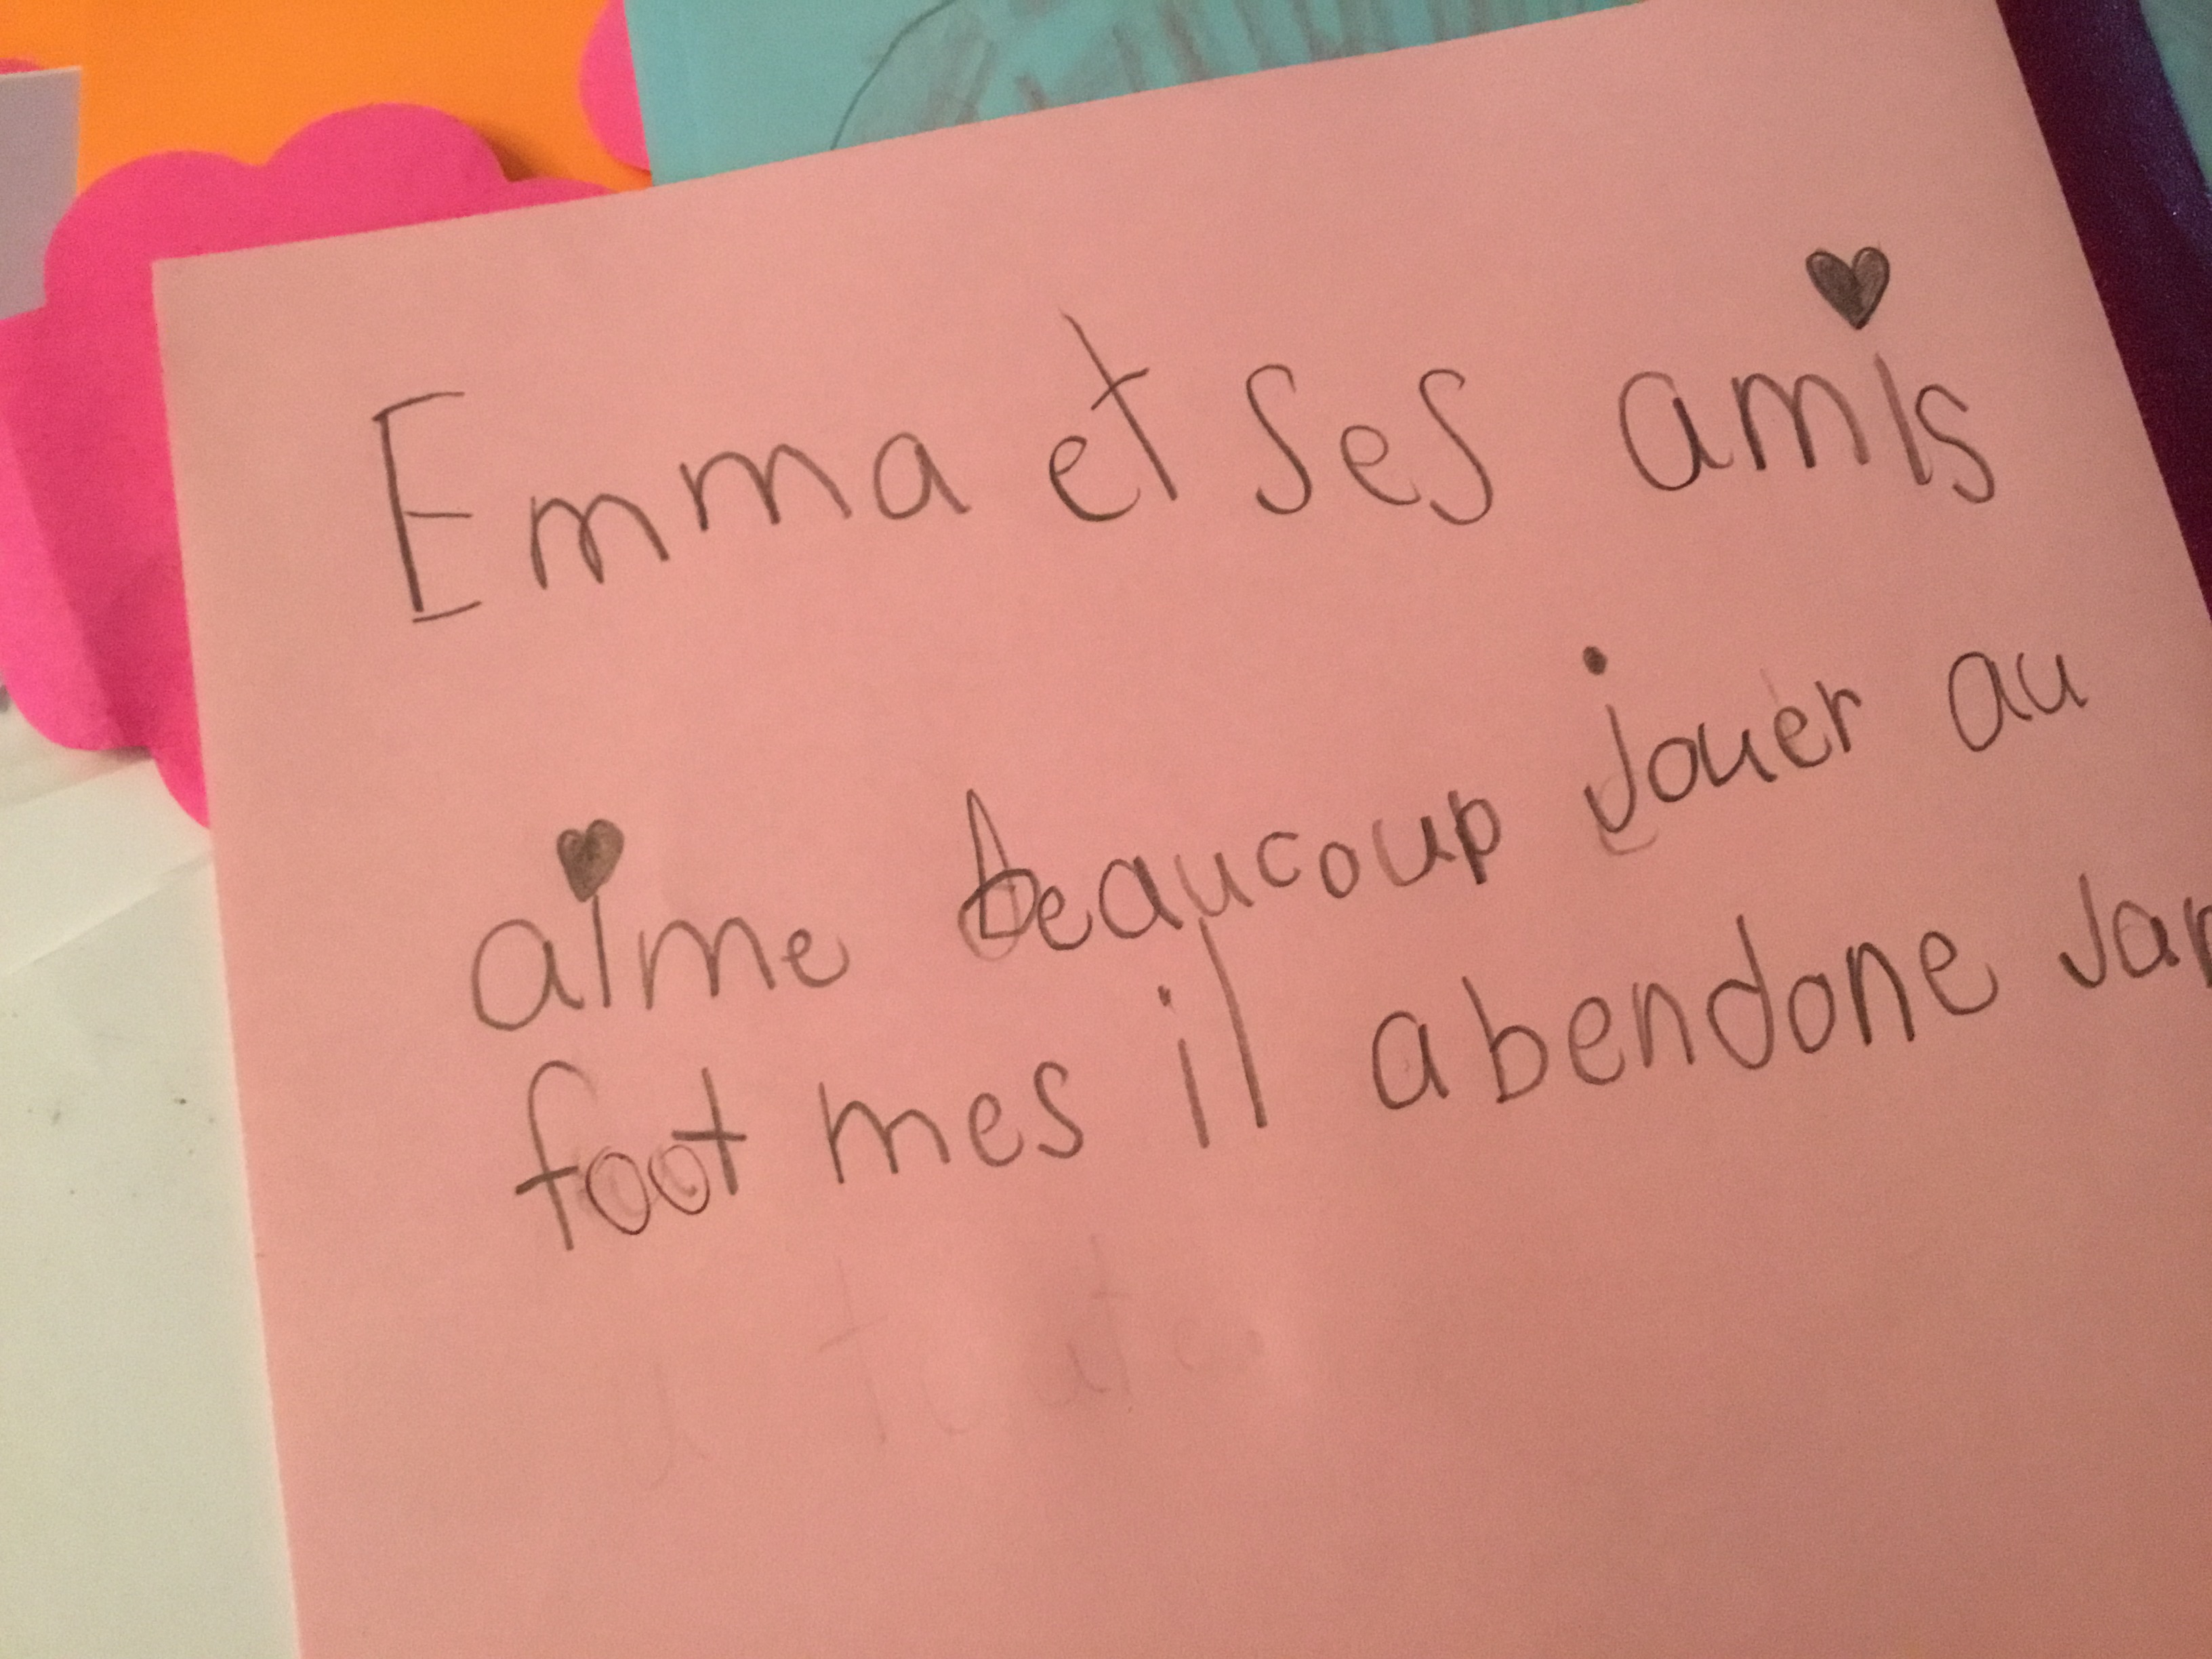 Emma et ses amis
aime beaucoup jouer au
foot mes il abendone